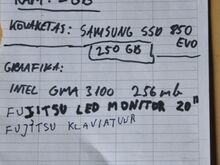 RAM: 2GB
KÕVAKETAS: SAMSUNG SSD 850
EVO
250 GB
GRAAFIKA:
INTEL GMA 3100 256mb
FUJITSU LED MONITOR 20"
FUJITSU KLAVIATUUR